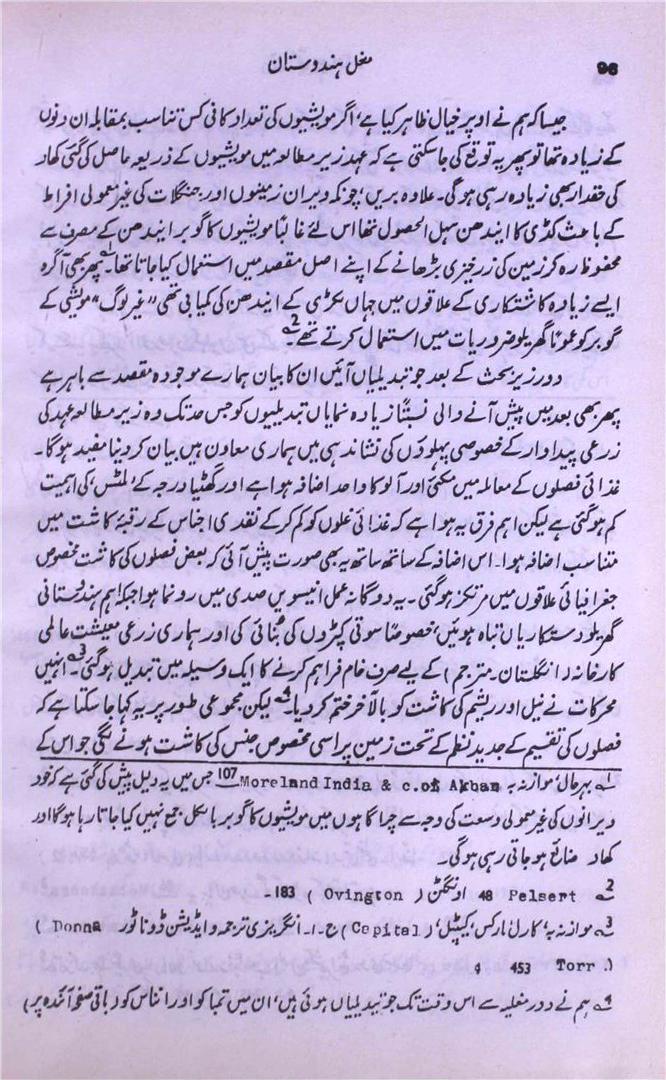 96
مغل ہندوستان
جیسا کہ ہم نے اوپر خیال ظاہر کیا ہے، اگر مویشیوں کی تعداد کافی کس تناسب بمقابلہ ان دنوں
کے زیادہ تھا تو پھر یہ توقع کی جاسکتی ہے کہ عہد زیر مطالعہ میں مویشیوں کے ذریعہ حاصل کی گئی کھاد
کی مقدار بھی زیادہ رہی ہوگی۔ علاوہ بریں، چونکہ ویران زمینوں اور جنگلات کی غیر معمولی افراط
کے باعث لکڑی کا ایندھن سہل الحصول تھا اس لئے غالباً مویشیوں کا گوبر ایندھن کے مصرف سے
محفوظ رہ کر زمین کی زرخیزی بڑھانے کے اپنے اصل مقصد میں استعمال کیا جاتا تھا۔1 پھر بھی آگرہ
ایسے زیادہ کاشتکاری کے علاقوں میں جہاں لکڑی کے ایندھن کی کمیابی تھی "غیر لوگ" مویشی کے
گوبر کو عموماً گھریلو ضروریات میں استعمال کرتے تھے۔2
دور زیر بحث کے بعد جو تبدیلیاں آئیں ان کا بیان ہمارے موجودہ مقصد سے باہر ہے
پھر بھی بعد میں پیش آنے والی نسبتاً زیادہ نمایاں تبدیلیوں کو جس حد تک وہ زیر مطالعہ عہد کی
زرعی پیداوار کے خصوصی پہلوؤں کی نشاندہی میں ہماری معاون ہیں بیان کر دینا مفید ہوگا۔
غذائی فصلوں کے معاملہ میں مکئی اور آلو کا واحد اضافہ ہوا ہے اور گھٹیا درجہ کے ملٹس، کی اہمیت
کم ہوگئی ہے لیکن اہم فرق یہ ہوا ہے کہ غذائی غلوں کو کم کرکے نقدی اجناس کے رقبۂ کاشت میں
متناسب اضافہ ہوا۔ اس اضافہ کے ساتھ ساتھ یہ بھی صورت پیش آئی کہ بعض فصلوں کی کاشت مخصوص
جغرافیائی علاقوں میں مرتکز ہوگئی۔ یہ دوگانہ عمل انیسویں صدی میں رونما ہوا جبکہ اہم ہندوستانی
گھریلو دستکاریاں تباہ ہوئیں، خصوصاً سوتی کپڑوں کی بُنائی کی اور ہماری زرعی معیشت عالمی
کارخانہ (انگلستان۔ مترجم) کے لیے صرف خام فراہم کرنے کا ایک وسیلہ میں تبدیل ہوگئی۔3 انہیں
محرکات نے نیل اور ریشم کی کاشت کو بالآخر ختم کردیا۔4 لیکن مجموعی طور پر یہ کہا جاسکتا ہے کہ
فصلوں کی تقسیم کے جدید نظم کے تحت زمین پر اسی مخصوص جنس کی کاشت ہونے لگی جو اس کے
1 بہرحال، موازنہ بہ Moreland India & c.of Akbam 107 جس میں یہ دلیل پیش کی گئی ہے کہ خود
ویرانوں کی غیر معمولی وسعت کی وجہ سے چراگاہوں میں مویشیوں کا گوبر بالکل جمع نہیں کیا جاتا رہا ہوگا اور
کھاد ضائع ہو جاتی رہی ہوگی۔
2 Pelsert 48 اونگٹن ( Ovington ) 183۔
3 موازنہ بہ، کارل مارکس، کیپٹل، (Capital) ج۔ا۔ انگریزی ترجمہ و ایڈیشن ڈونا ٹور ( Donna
Torr ) 453 ۔
4 ہم نے دور مغلیہ سے اس وقت تک جو تبدیلیاں ہوئی ہیں، ان میں تمباکو اور انناس کو (باقی صفحہ آئندہ پر)